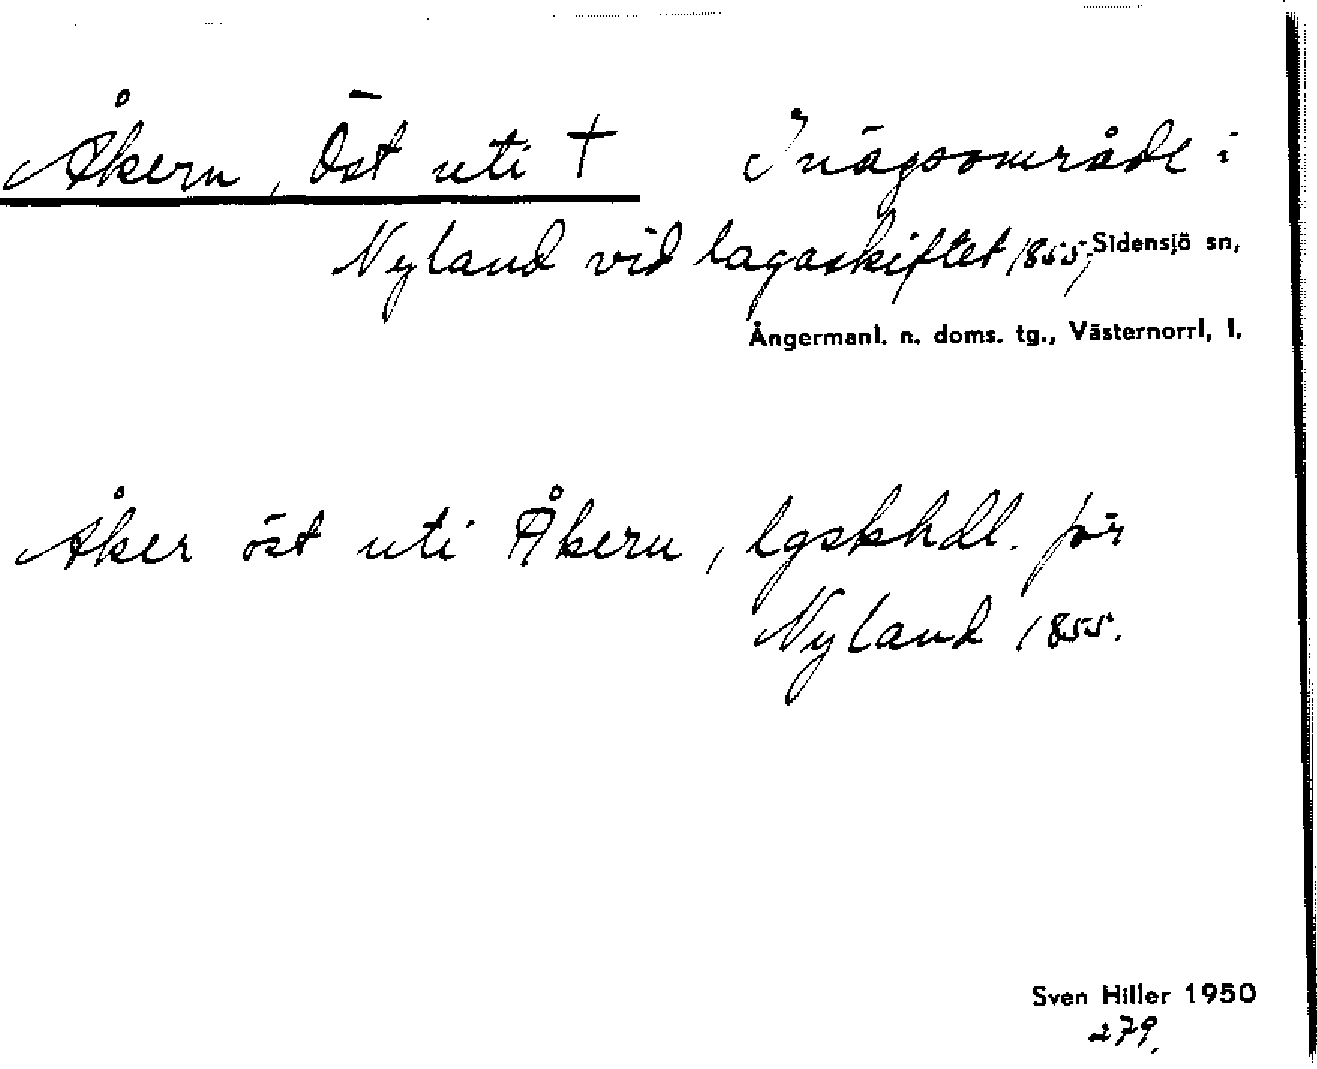 Åkern, Öst uti † Inägoområde i
Nyland vid lagaskiftet 1855, Sidensjö sn,
Ångermanl. n. doms. tg., Västernorrl. l.
Åker öst uti Åkern, lgskhdl. för
Nyland 1855.
Sven Hiller 1950
279.